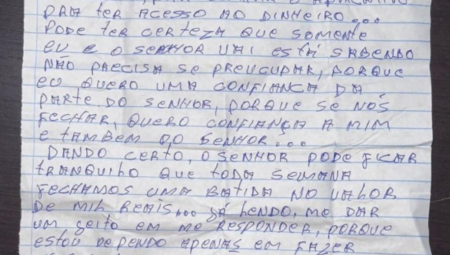 PRA TER ACESSO AO DINHEIRO...
PODE TER CERTEZA QUE SOMENTE
EU E O SENHOR VAI ESTÁ SABENDO
NÃO PRECISA SE PREUCUPAR, PORQUE
EU QUERO UMA CONFIANÇA DA
PARTE DO SENHOR, PORQUE SE NÓS
FECHAR, QUERO CONFIANÇA A MIM
E TAMBEM AO SENHOR...
DANDO CERTO, O SENHOR PODE FICAR
TRANQUILHO QUE TODA SEMANA
FECHAMOS UMA BATIDA NO VALHOR
DE MIL REAIS... JÁ LENDO, ME DAR
UM GEITO EM ME RESPONDER, PORQUE
ESTOU DEPENDO APENAS EM FAZER